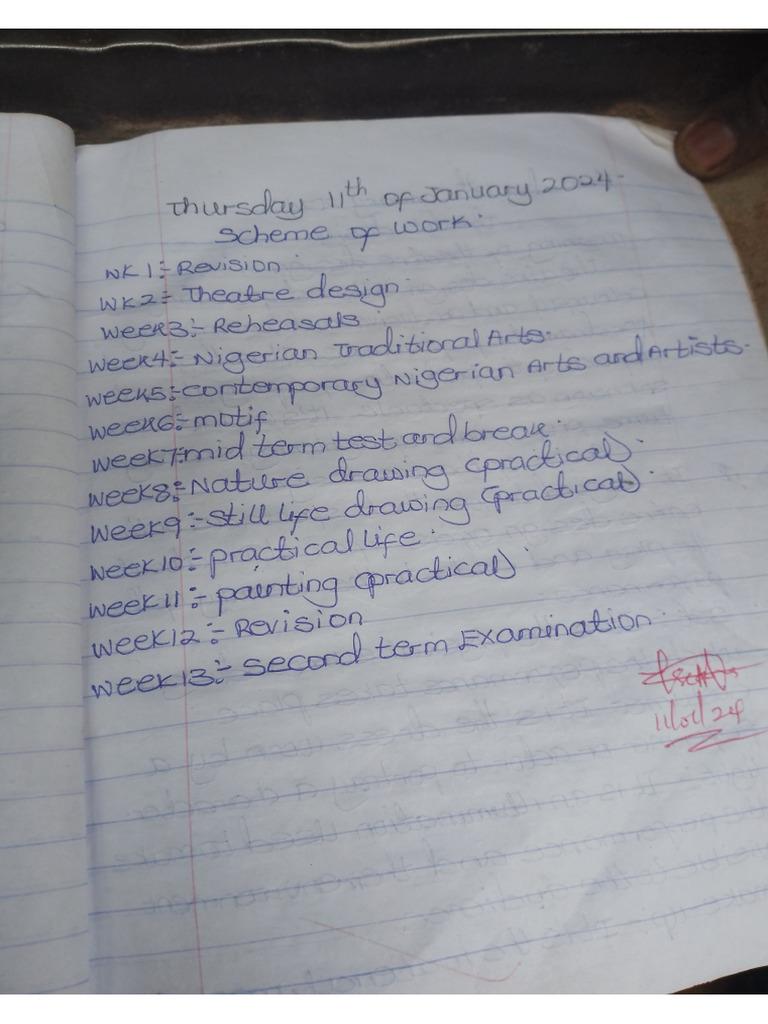 Thursday 11th of January 2024.
Scheme of work.
WK 1:- Revision
WK2:- Theatre design
Week3:- Reheasals
Week4:- Nigerian Traditional Arts.
Week5:- Contemporary Nigerian Arts and Artists.
Week6:- motif
Week7:- mid term test and break.
Week8:- Nature drawing (practical).
Week9:- Still life drawing (practical).
Week10:- practical life.
Week11:- painting (practical)
Week12:- Revision
Week13:- Second term Examination.
11/01/24